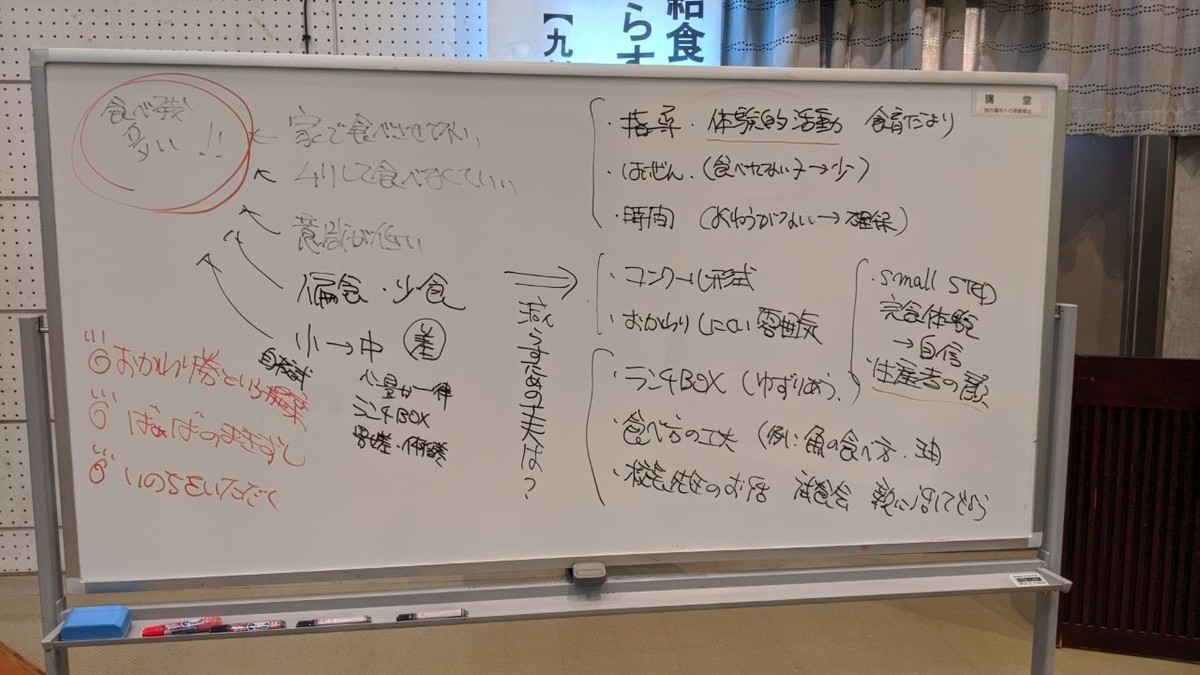 給食
らす
【九
講堂
食べ残し
多い!!
家で食べさせてない
ムリして食べなくていい
意識が低い
偏食・少食
小→中 差
自校式
心量が一律
ランチBOX
男女差・体格差
おかわり勝という授業
ばぁばのまきずし
いのちをいただく
減らすための工夫は?
・指導 体験的活動 食育だより
・はいぜん (食べれない子→少)
・時間 (おわらない→確保)
・コンクール形式
・おかわりしにくい雰囲気
・ランチBOX (ゆずりあう)
・食べ方の工夫 (例:魚の食べ方
・校長先生のお話 試食会 親に話してもらう
・small STEP
完食体験
→自信
・生産者の顔